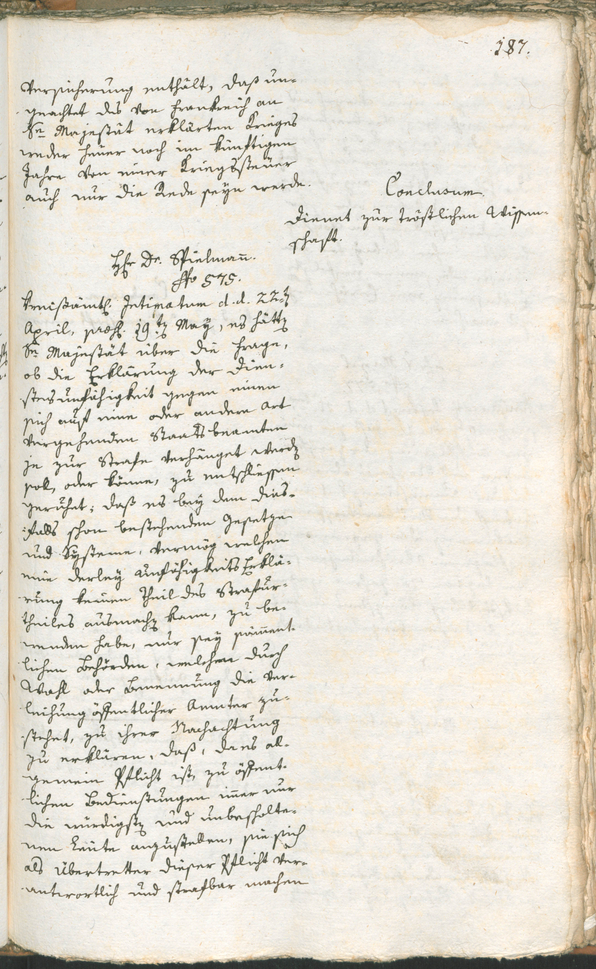 187.
Versicherung enthält, daß un-
geachtet des von Frankreich an
Se Majestät erklärten Krieges
weder heuer noch im künftigen
Jahre von einer Kriegssteuer
auch nur die Rede seyn werde.
Conclusum.
Dienet zur tröstlichen Wissen-
schaft.
Hr Dr. Spielmann.
No 575.
Kreisämtl. Intimatum d. d. 22ten
April, praes. 19ten May, es hätten
Se Majestät über die Frage,
ob die Erklärung der Dien-
stesunfähigkeit gegen einen
sich auf eine oder andere Art
vergehenden Staatsbeamten
je zur Strafe verhänget werden
soll, oder könne, zu entschliessen
geruhet; daß es bey dem dies-
falls schon bestehenden Gesetze
und Systeme, vermög welchen
eine derley Unfähigkeits Erklä-
rung keinen Theil des Strafur-
theiles ausmachen kann, zu be-
wenden habe, nur sey sämmt-
lichen Behörden, welchen durch
Wahl oder Benennung die Ver-
leihung öffentlicher Aemter zu-
stehet, zu ihrer Nachachtung
zu erklären, daß, da es al-
gemein Pflicht ist, zu öffent-
lichen Bedienstungen immer nur
die würdigsten und unbescholte-
nen Leute anzustellen, sie sich
als Übertretter dieser Pflicht ver-
antwortlich und strafbar machen